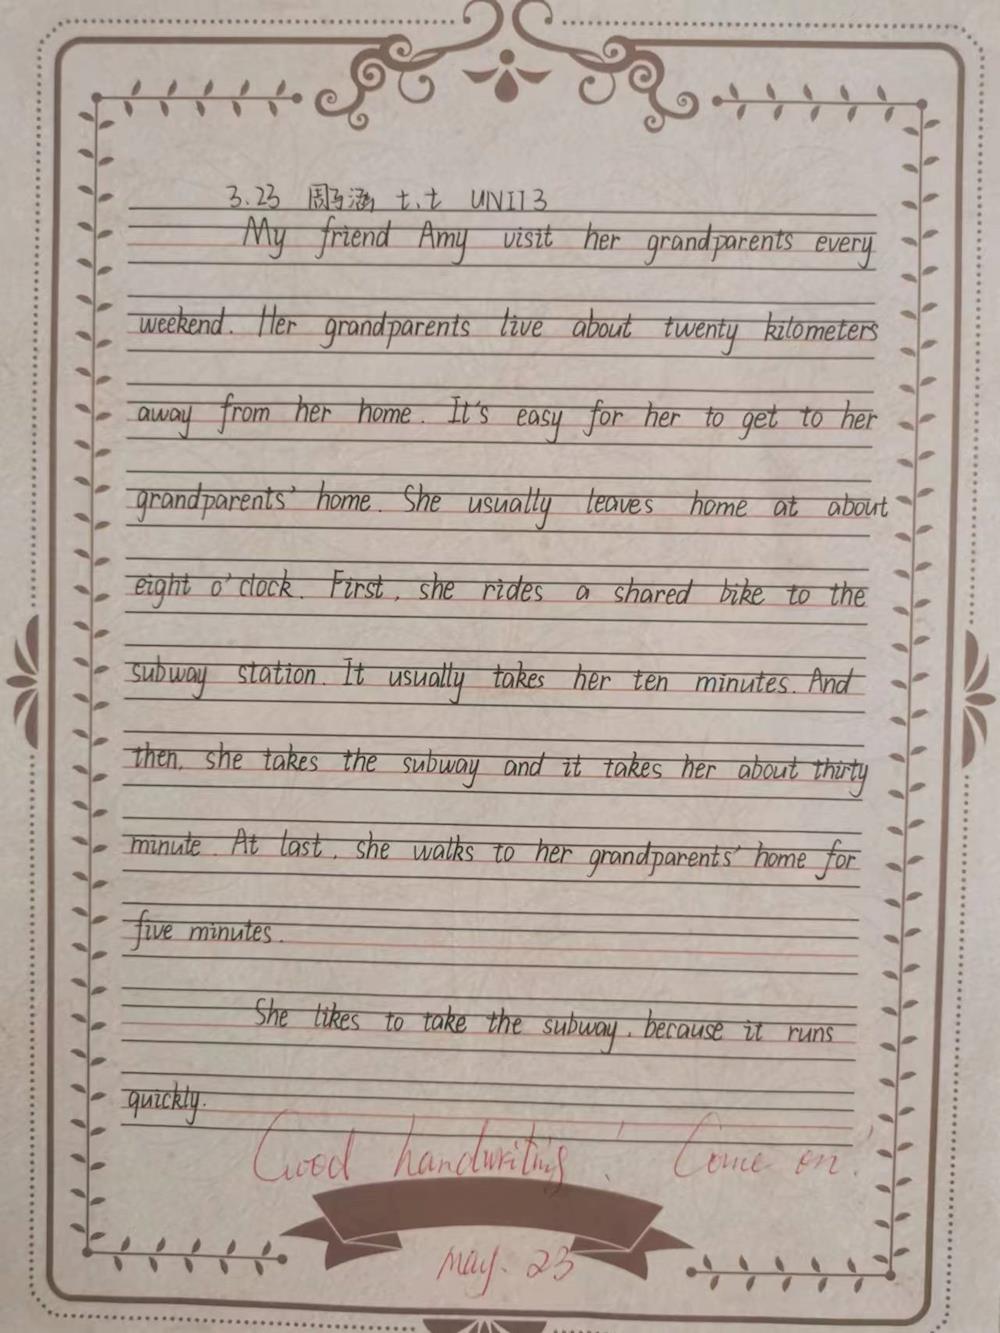 3.23 周子涵 t.t UNIT3
My friend Amy visit her grandparents every
weekend. Her grandparents live about twenty kilometers
away from her home. It's easy for her to get to her
grandparents' home. She usually leaves home at about
eight o'clock. First, she rides a shared bike to the
subway station. It usually takes her ten minutes. And
then, she takes the subway and it takes her about thirty
minute. At last, she walks to her grandparents' home for
five minutes.
She likes to take the subway, because it runs
quickly.
Good handwriting! Come on!
May. 23